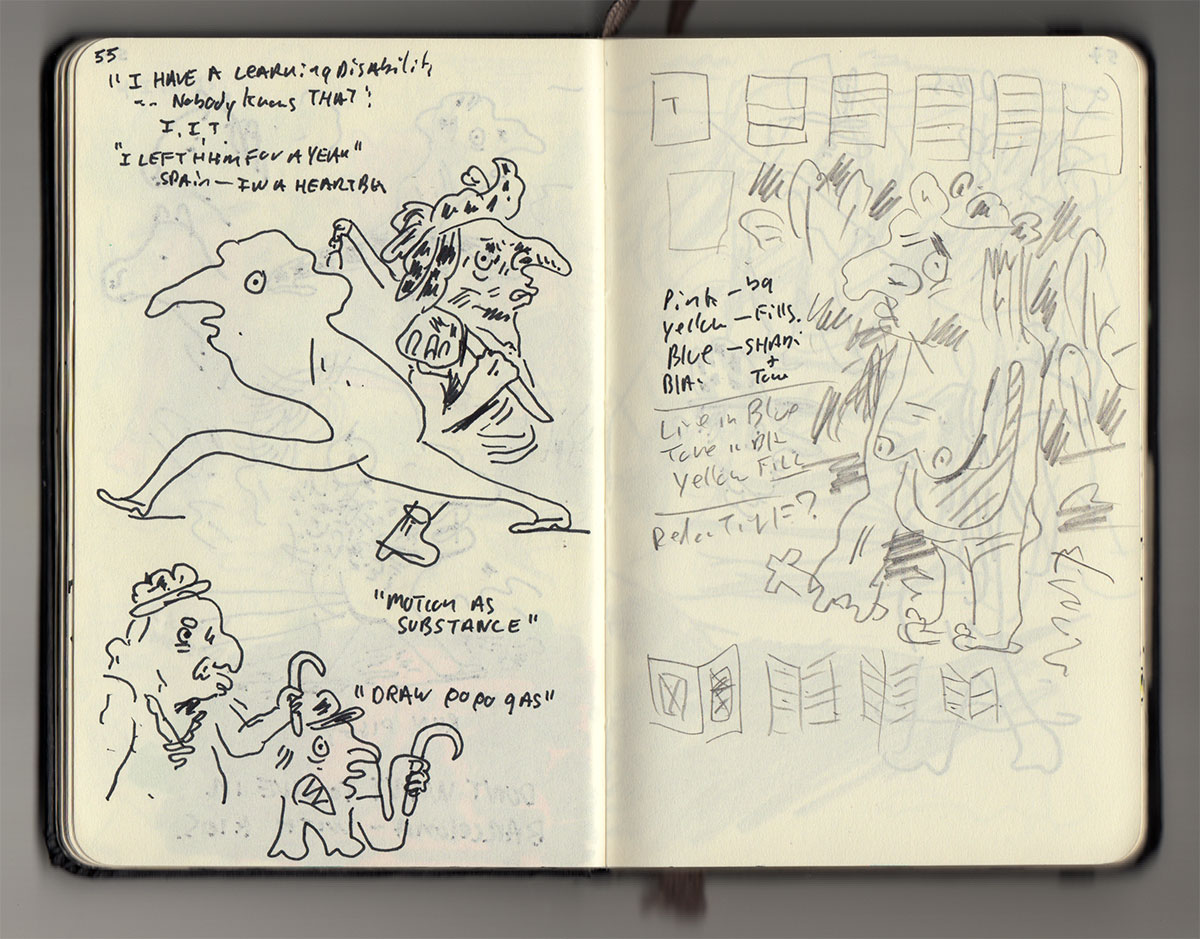 55
"I HAVE A LEARNING DISABILITY
-- Nobody knows THAT"
I. I. T
"I LEFT HIM FOR A YEAR"
SPAIN — I W A
"MOTION AS
SUBSTANCE"
"DRAW POPO GAS"
T
Pink — bg
Yellow — Fills.
Blue — SHADI
+
BlA. Tone
Line in Blue
Tone in Blk
Yellow Fill
TITLE?